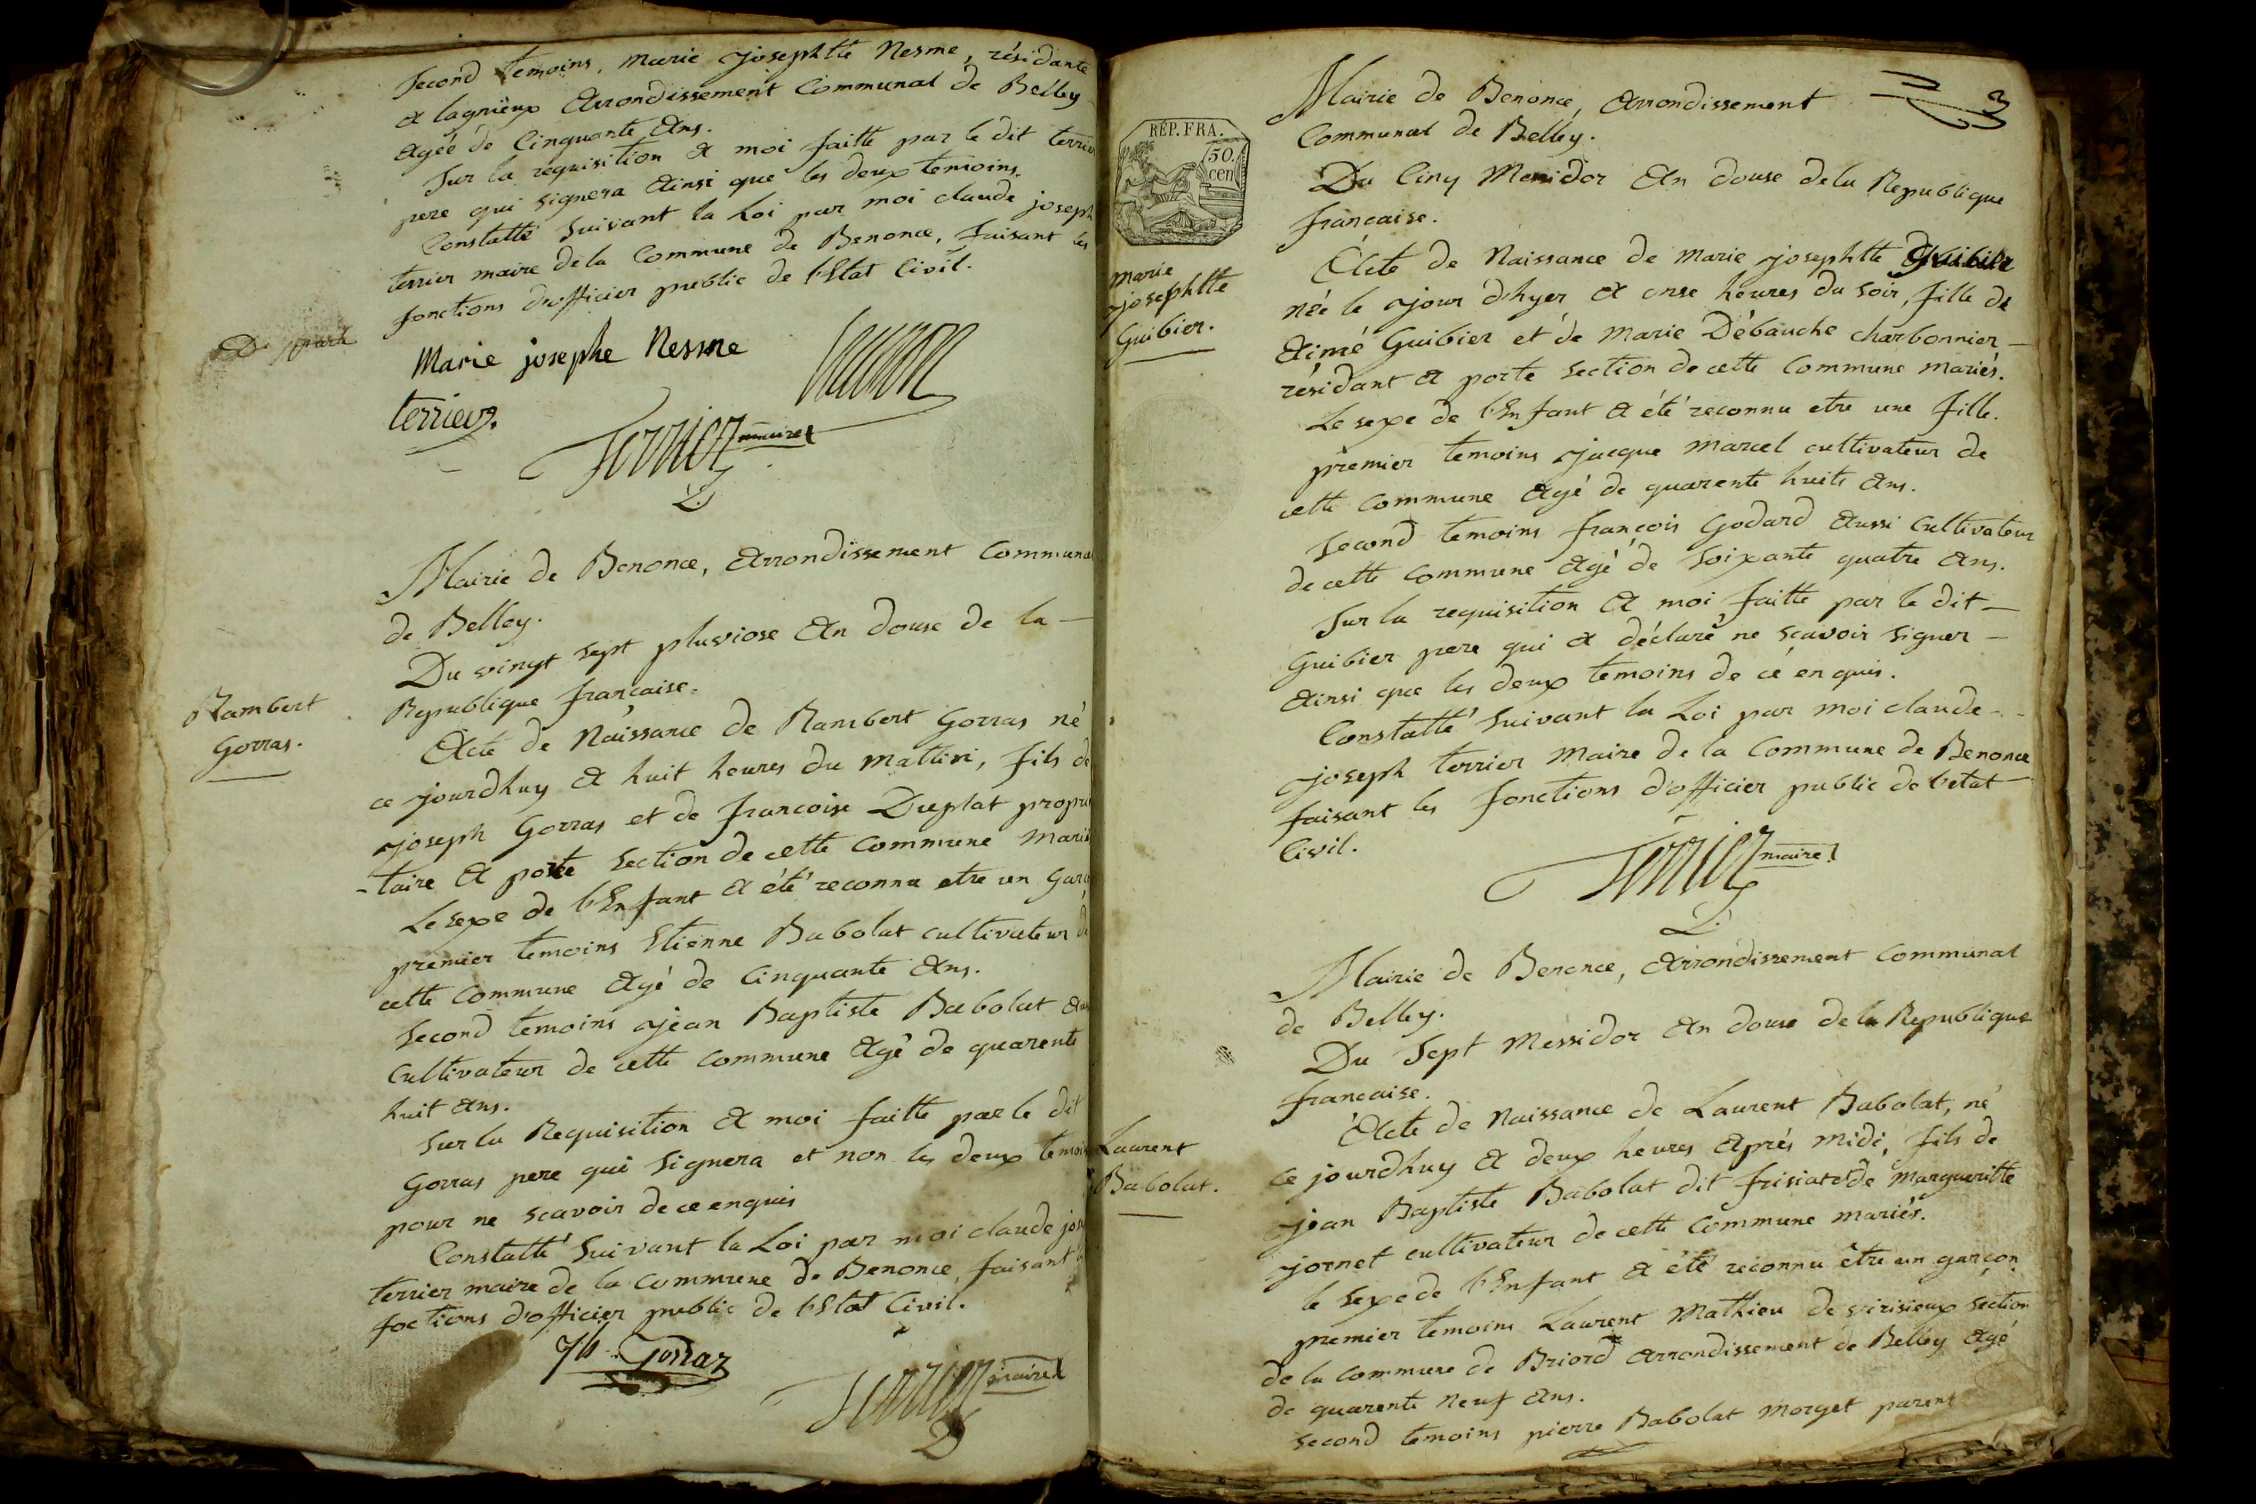 Second temoins, marie josephtte Nesme, résidante
a lagnieux arrondissement Communal de Belley
agée de Cinquante ans.
Sur la requisition a moi faitte par le dit terrier
pere qui signera ainsi que les deux temoins.
Constatté suivant la Loi par moi claude joseph
terrier maire de la Commune de Benonce, faisant les
fonctions d'officier public de l'Etat Civil.
Marie josephe Nesme
terrier.
Terrier maire
Mairie de Benonce, arrondissement Communal
de Belley.
Du vingt sept pluviose an douse de la
Republique française.
Rambert
Gorras.
Acte de Naissance de Rambert Gorras né
ce jourdhuy a huit heures du mattin, fils de
joseph Gorras et de francoise Duplat proprie
-taire a porte section de cette Commune Mariés
Le sexe de l'Enfant a été reconnu etre un garçon
premier temoins Etienne Babolat cultivateur de
cette Commune agé de Cinquante ans.
Second temoins jean Baptiste Babolat
Cultivateur de cette Commune agé de quarente
huit ans.
Sur la Requisition a moi faitte par le dit
Gorras pere qui signera et non les deux temoins
pour ne scavoir de ce enquis
Constatté suivant la Loi par moi claude jose
terrier maire de la commune de Benonce, faisant
foctions d'officier public de l'Etat Civil.
Jh Gorraz
Terrier maire
3
Mairie de Benonce, arrondissement
Communal de Belley.
RÉP. FRA.
50.
cen
Du Cinq Messidor an douse de la Republique
française.
marie
josephtte
Guibier.
Acte de Naissance de marie josephtte Guibier
née le jour d'hyer a onse heures du soir, fille de
aimé Guibier et de marie Débauche charbonnier
résidant a porte section de cette Commune mariés.
Le sexe de l'Enfant a été reconnu etre une fille.
premier temoins jacque marcel cultivateur de
cette commune agé de quarente huite ans.
Second temoins françois Godard aussi cultivateur
de cette commune agé de soixante quatre ans.
Sur la requisition a moi faitte par le dit
Guibier pere qui a déclaré ne scavoir signer
ainsi que les deux temoins de cé enquis.
Constatté suivant la Loi par moi claude
joseph terrier maire de la Commune de Benonce
faisant les fonctions d'officier public de l'etat
Civil.
Terrier maire
Mairie de Benonce, arrondissement Communal
de Belley.
Du Sept Messidor an douse de la Republique
francaise.
Laurent
Babolat.
Acte de Naissance de Laurent Babolat, né
ce jourdhuy a deux heures aprés midi, fils de
jean Baptiste Babolat dit frisiat de margueritte
jornet cultivateur de cette Commune mariés.
le sexe de l'Enfant a été reconnu être un garçon
premier temoins Laurent Mathieu de vérisieux section
de la commune de Briord arrondissement de Belley agé
de quarente neuf ans.
Second temoins pierre Babolat morget parent